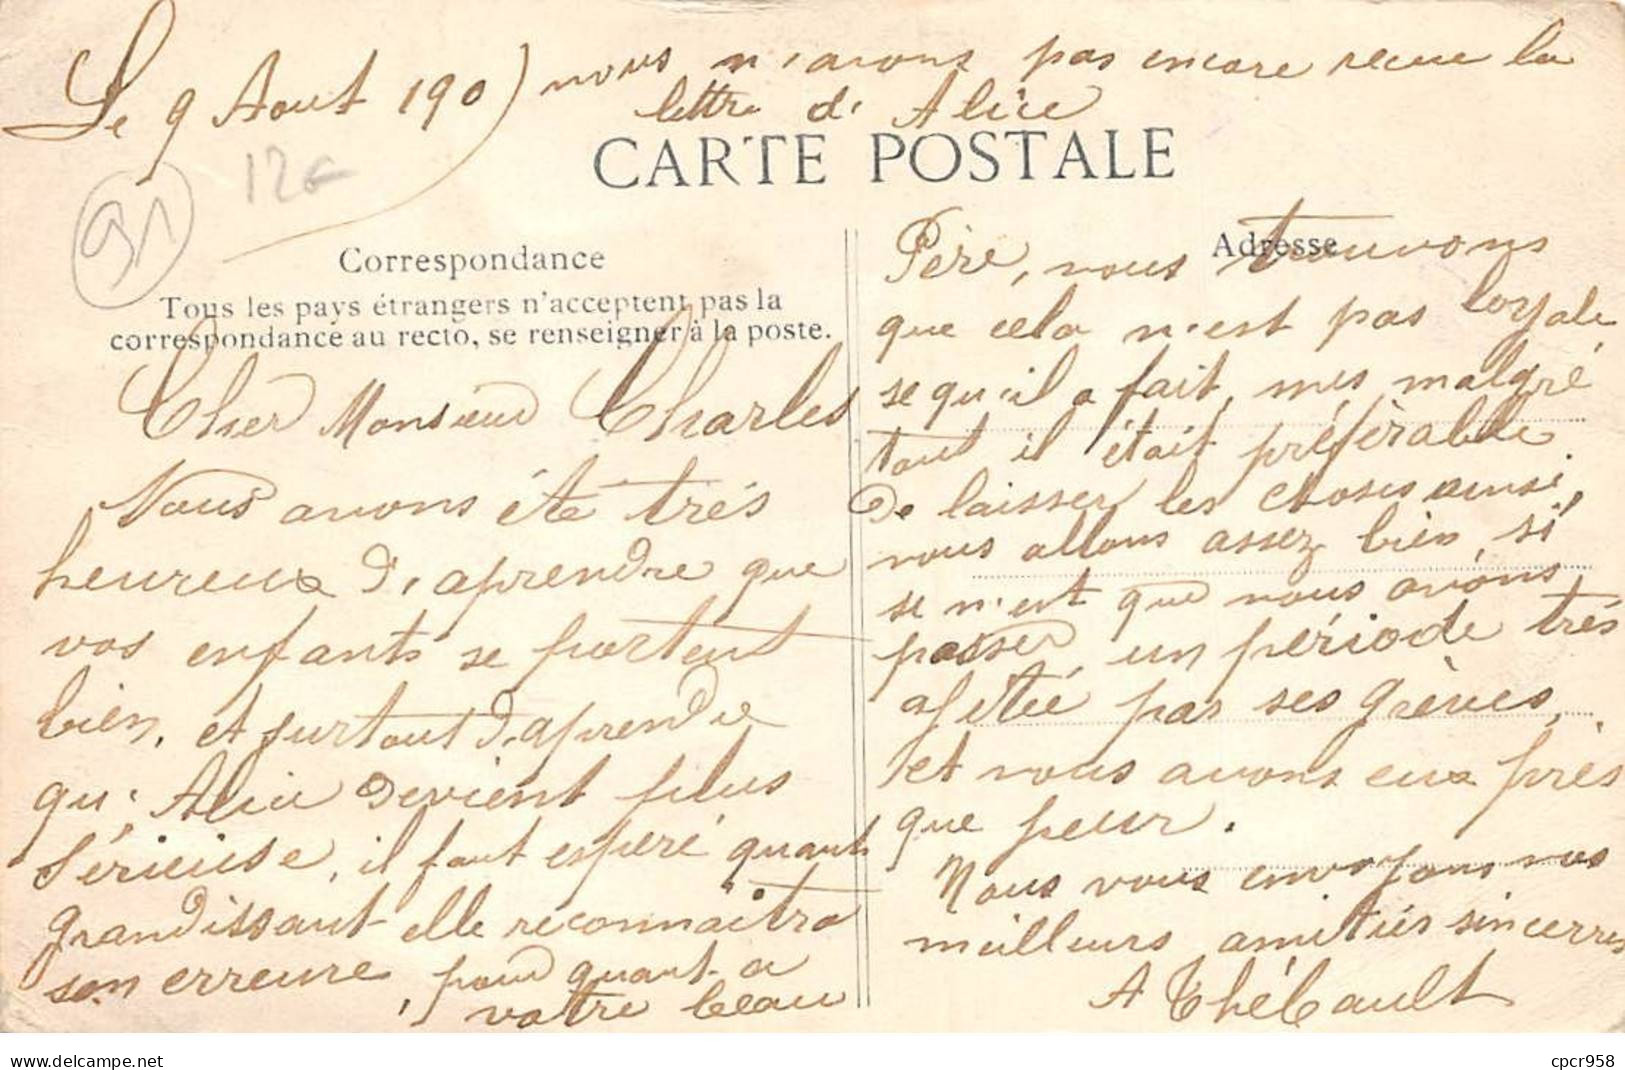 Le 9 Aout 190) nous n'avons pas encore recue la
lettre d' Alice
12€
91
CARTE POSTALE
Correspondance
Tous les pays étrangers n'acceptent pas la
correspondance au recto, se renseigner à la poste.
Cher Monsieur Charles
Nous avons été trés
heureux d'aprendre que
vos enfants se portent
bien, et surtout d'aprendre
qu' Alice devient plus
sérieuse, il faut esperé quant
grandissant elle reconnaitra
son erreure, pour quant a
votre beau
Adresse
Père, nous trouvons
que cela n'est pas loyale
se qu'il a fait, mes malgré
tout il était préférable
de laisser les choses ainsi,
nous allons assez bien, si
se n'est que nous avons
passer un période trés
agitée par ses grèves,
et nous avons eux près
que peur.
Nous vous envoyons nos
meilleurs amitiés sincerres
A Thébault
cpcr958